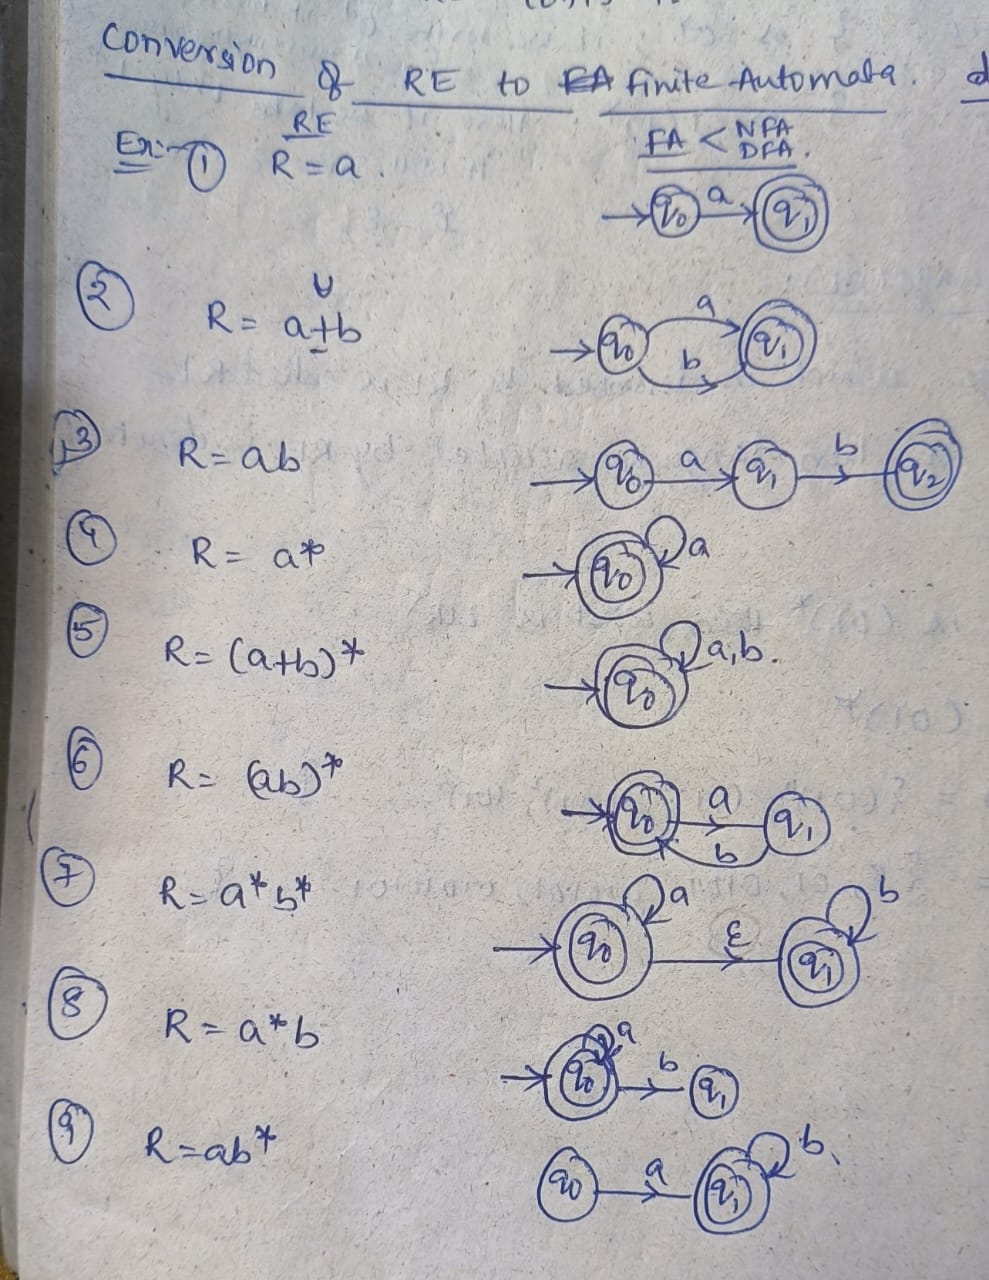 Conversion of RE to FA finite Automata. d
RE
FA < NFA
DFA.
Ex:- ① R = a.
→ q0 a q1
② ∪
R = a+b
→ q0 a b q1
13 R = ab
→ q0 a q1 b q2
④ R = a*
→ q0 a
⑤ R = (a+b)*
→ q0 a,b.
⑥ R = (ab)*
→ q0 a b q1
⑦ R = a* b*
→ q0 a ε q1 b
⑧ R = a* b
→ q0 a b q1
⑨ R = ab*
q0 a q1 b.